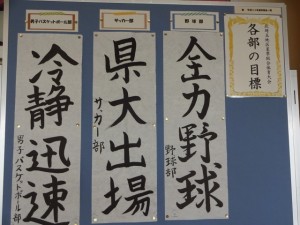 各部の目標
野球部
全力野球
野球部
サッカー部
県大出場
サッカー部
男子バスケットボール部
冷静迅速
男子バスケットボール部